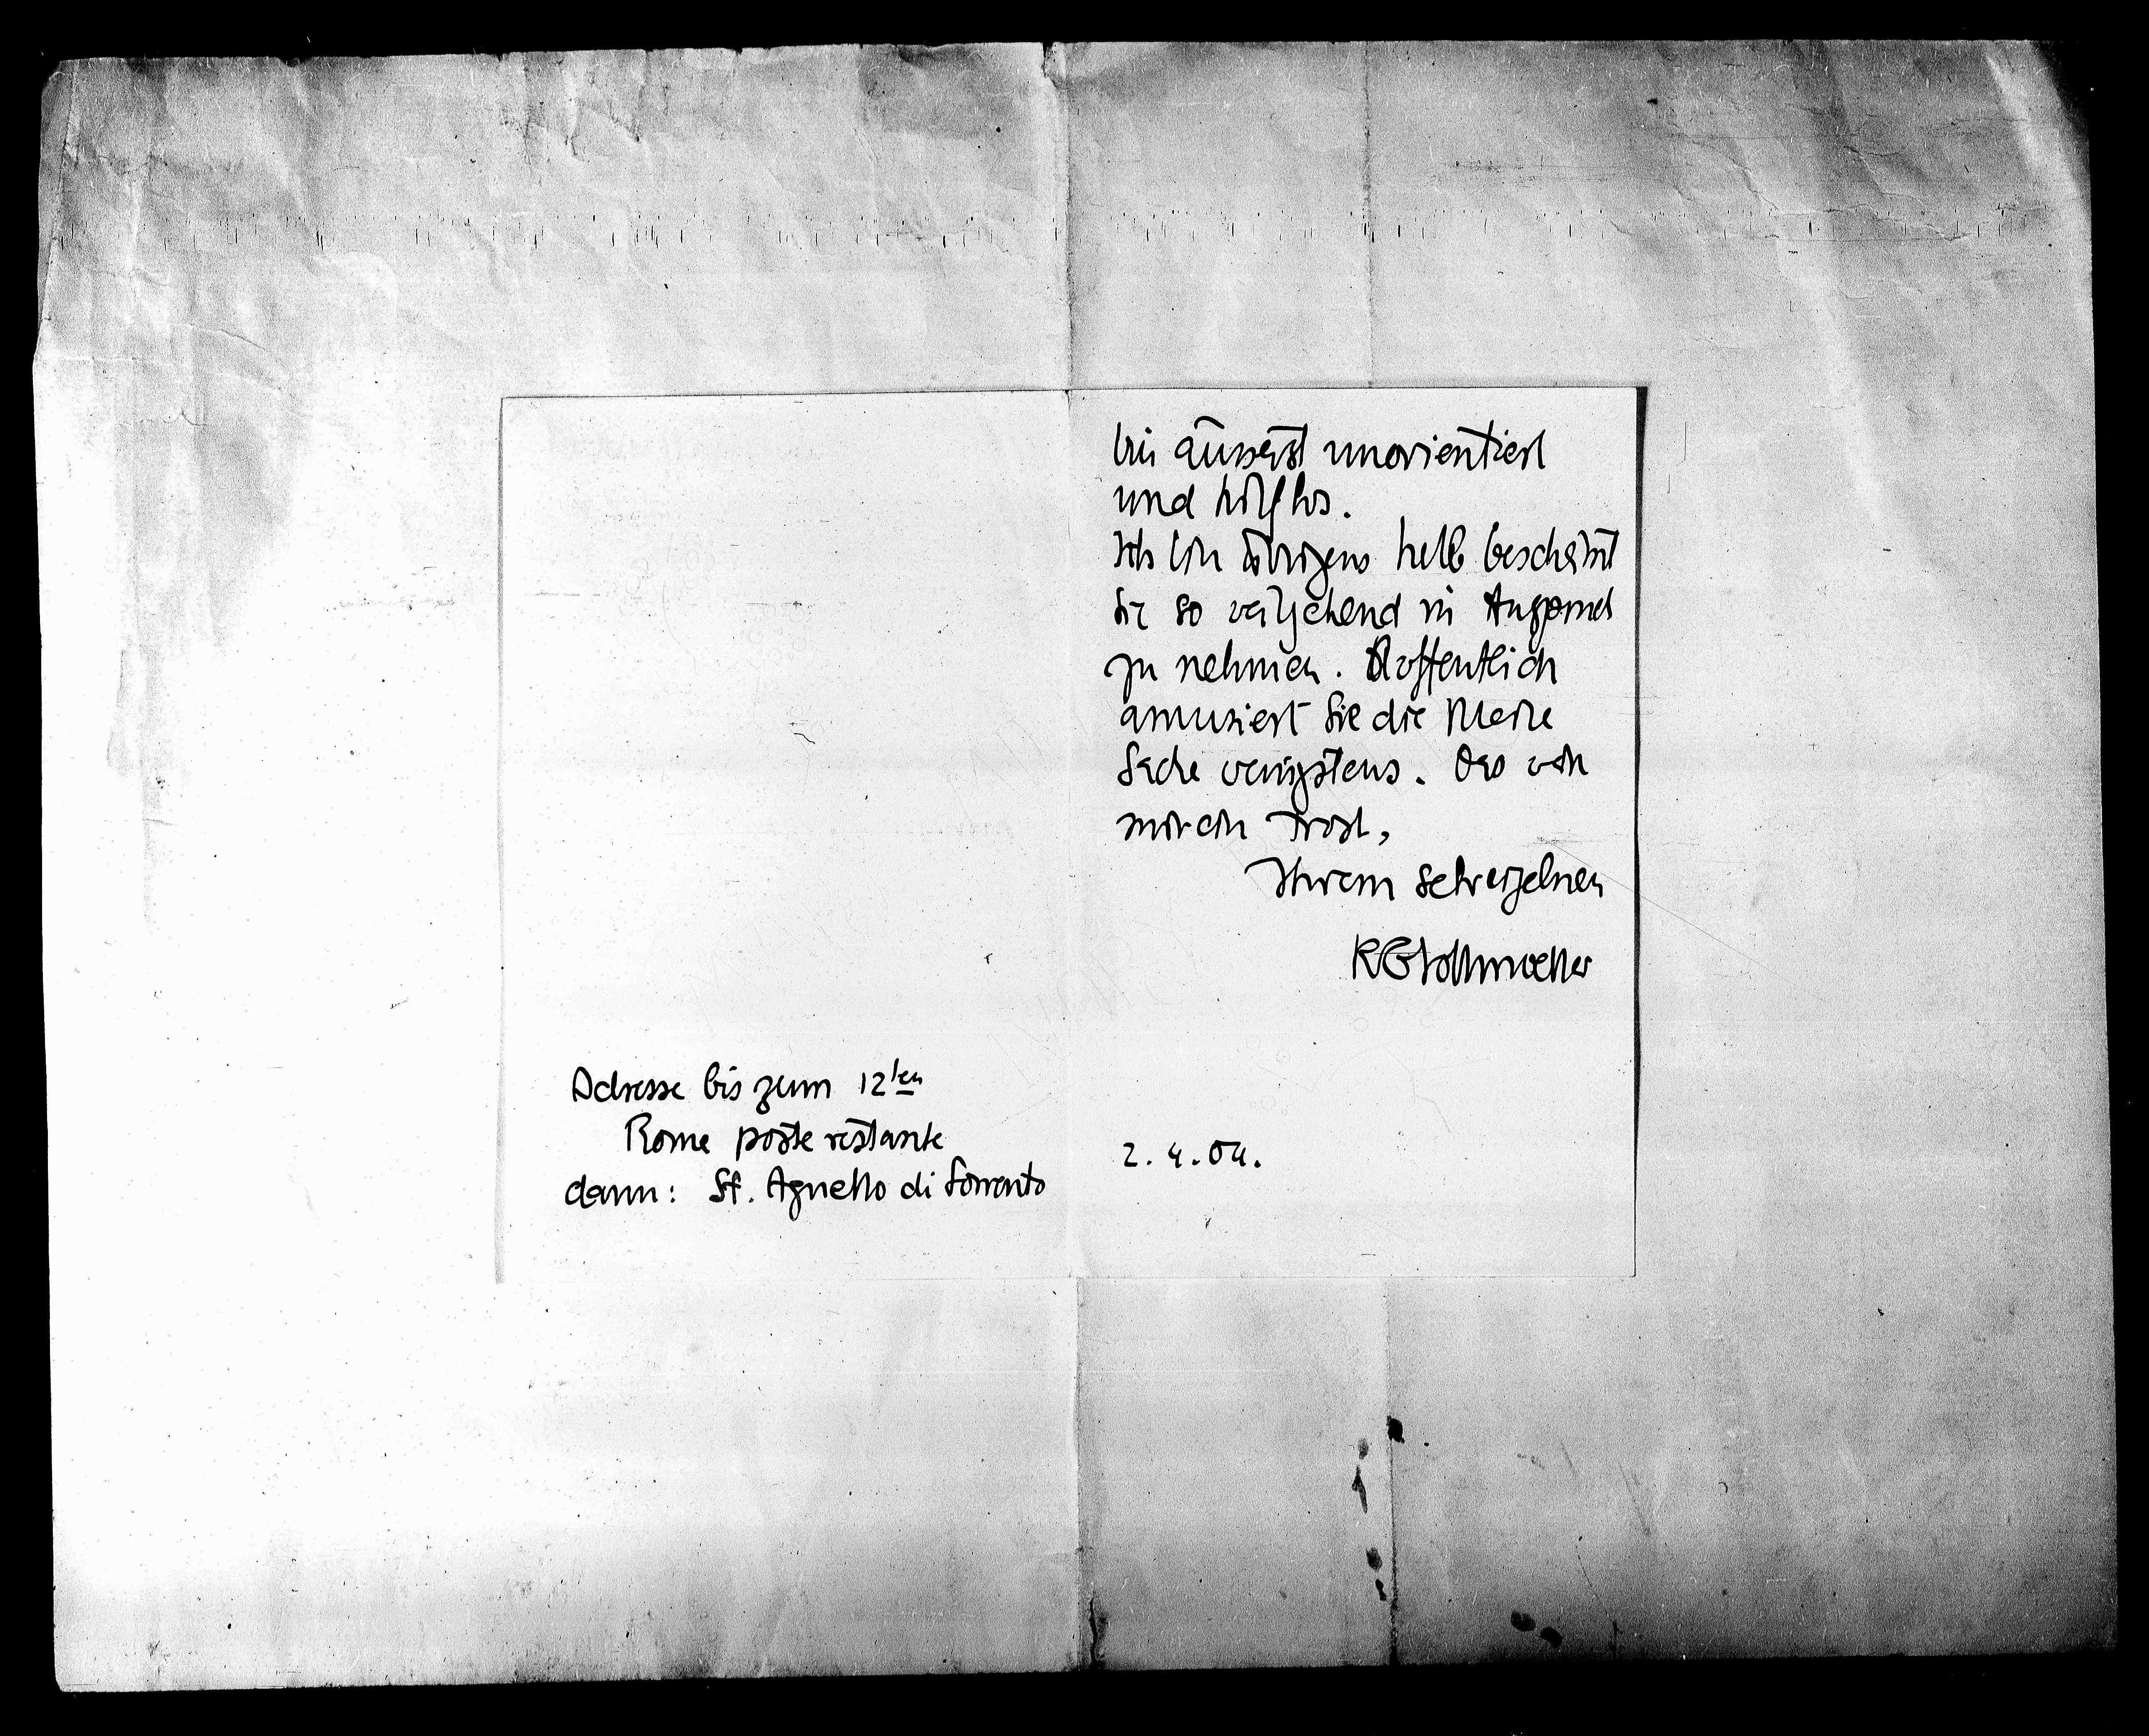 bin äusserst unorientiert
und hilflos.
Ich bin übrigens halb beschämt
Sie so weitgehend in Anspruch
zu nehmen. Hoffentlich
amusiert Sie die kleine
Sache wenigstens. Das wär
mir ein Trost,
Ihrem sehr ergebnen
KGVollmoeller
Adresse bis zum 12ten
Rome poste restante
dann: St. Agnello di Sorrento
2.4.04.